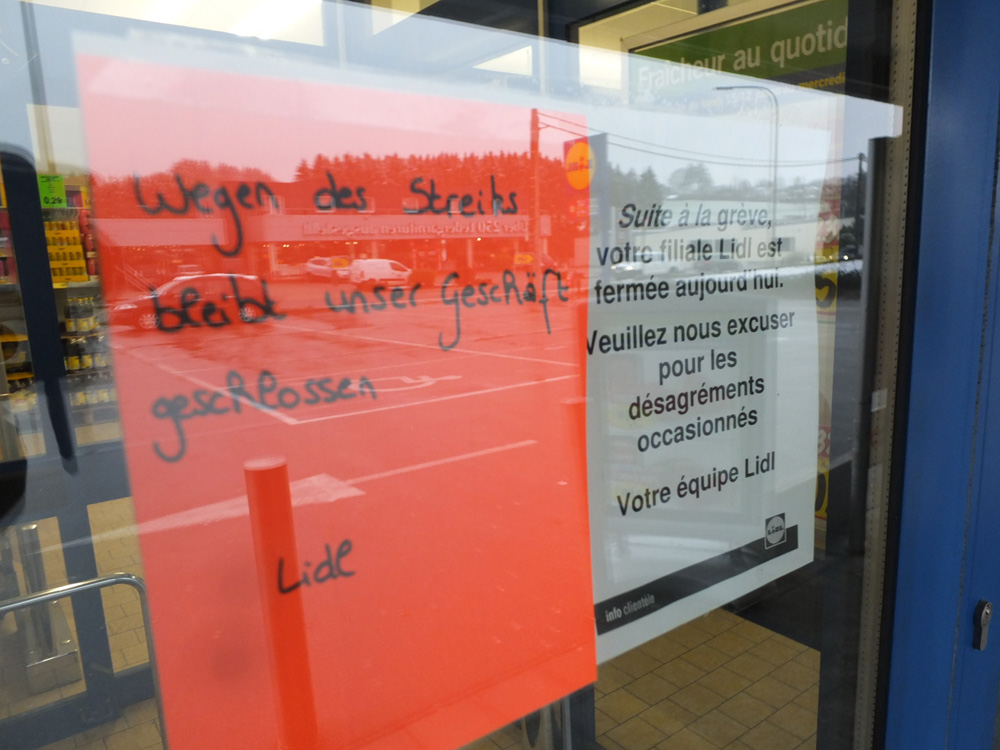 Fraîcheur au quotid
mercredi
0.29
Wegen des Streiks
bleibt unser Geschäft
geschlossen
Lidl
Suite à la grève,
votre filiale Lidl est
fermée aujourd'hui.
Veuillez nous excuser
pour les
désagréments
occasionnés
Votre équipe Lidl
LIDL
info clientèle